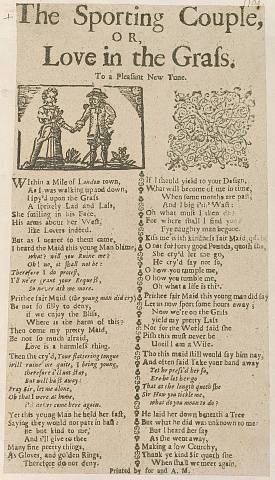 The Sporting Couple,
OR,
Love in the Grass.
To a Pleasant New Tune.
Within a Mile of London town,
As I was walking up and down,
I spy'd upon the Grass
A spritely Lad and Lass,
She smiling in his Face,
His arms about her Wast,
like Lovers indeed.
But as I nearer to them came,
I heard the Maid this young Man blame,
what! will you Ruine me?
Oh! no, it shall not be:
Therefore I do protest,
I'd ne'er grant your Request,
So ne'er ask me more.
Prithee fair Maid (the young Man did cry)
Be not so silly to deny,
if we enjoy the Bliss,
Where is the harm of this?
Then come my pretty Maid,
Be not so much afraid,
Love is a harmless thing.
Then she cry'd, Your flattering tongue
Will ruine me quite, I being young,
therefore I'll not stay,
But will hast away:
Pray Sir, let me alone,
Oh that I were at home,
I'd never come here again.
Yet this young Man he held her fast,
Saying they would not part in hast:
Be but kind to me,
And I'll give to thee
Many fine pretty things,
As Gloves, and golden Rings,
Therefore do not deny.
If I should yield to your Design,
What will become of me in time,
When some months are past,
And I big in Wast:
Oh what must I then do?
For where shall I find you?
I've naughty men beguile.
Kiss me with kindness fair Maid,
O not for forty good Pounds, quoth she,
She cry'd let me go,
He cry'd say not so,
O how you rumple me,
O how you tumble me,
Oh what a life is this.
Prithee fair Maid this young man did say
Let us now sport some hours away;
Now we're on the Grass
yield my pretty Lass
Not for the World said she
This this must never be
Until I am a Wife.
Tho this maid still would say him nay,
And often said Take your hand away
Yet he press'd her so,
E're he let her go
That at the length quoth she
Sir How you tickle me,
what do you mean to do?
He laid her down beneath a Tree
But what he did was unknown to me:
But I heard her say
As she went away,
Making a low Courtchy,
Thank ye kind Sir quoth she
When shall we meet again.
Printed by for and A. M.